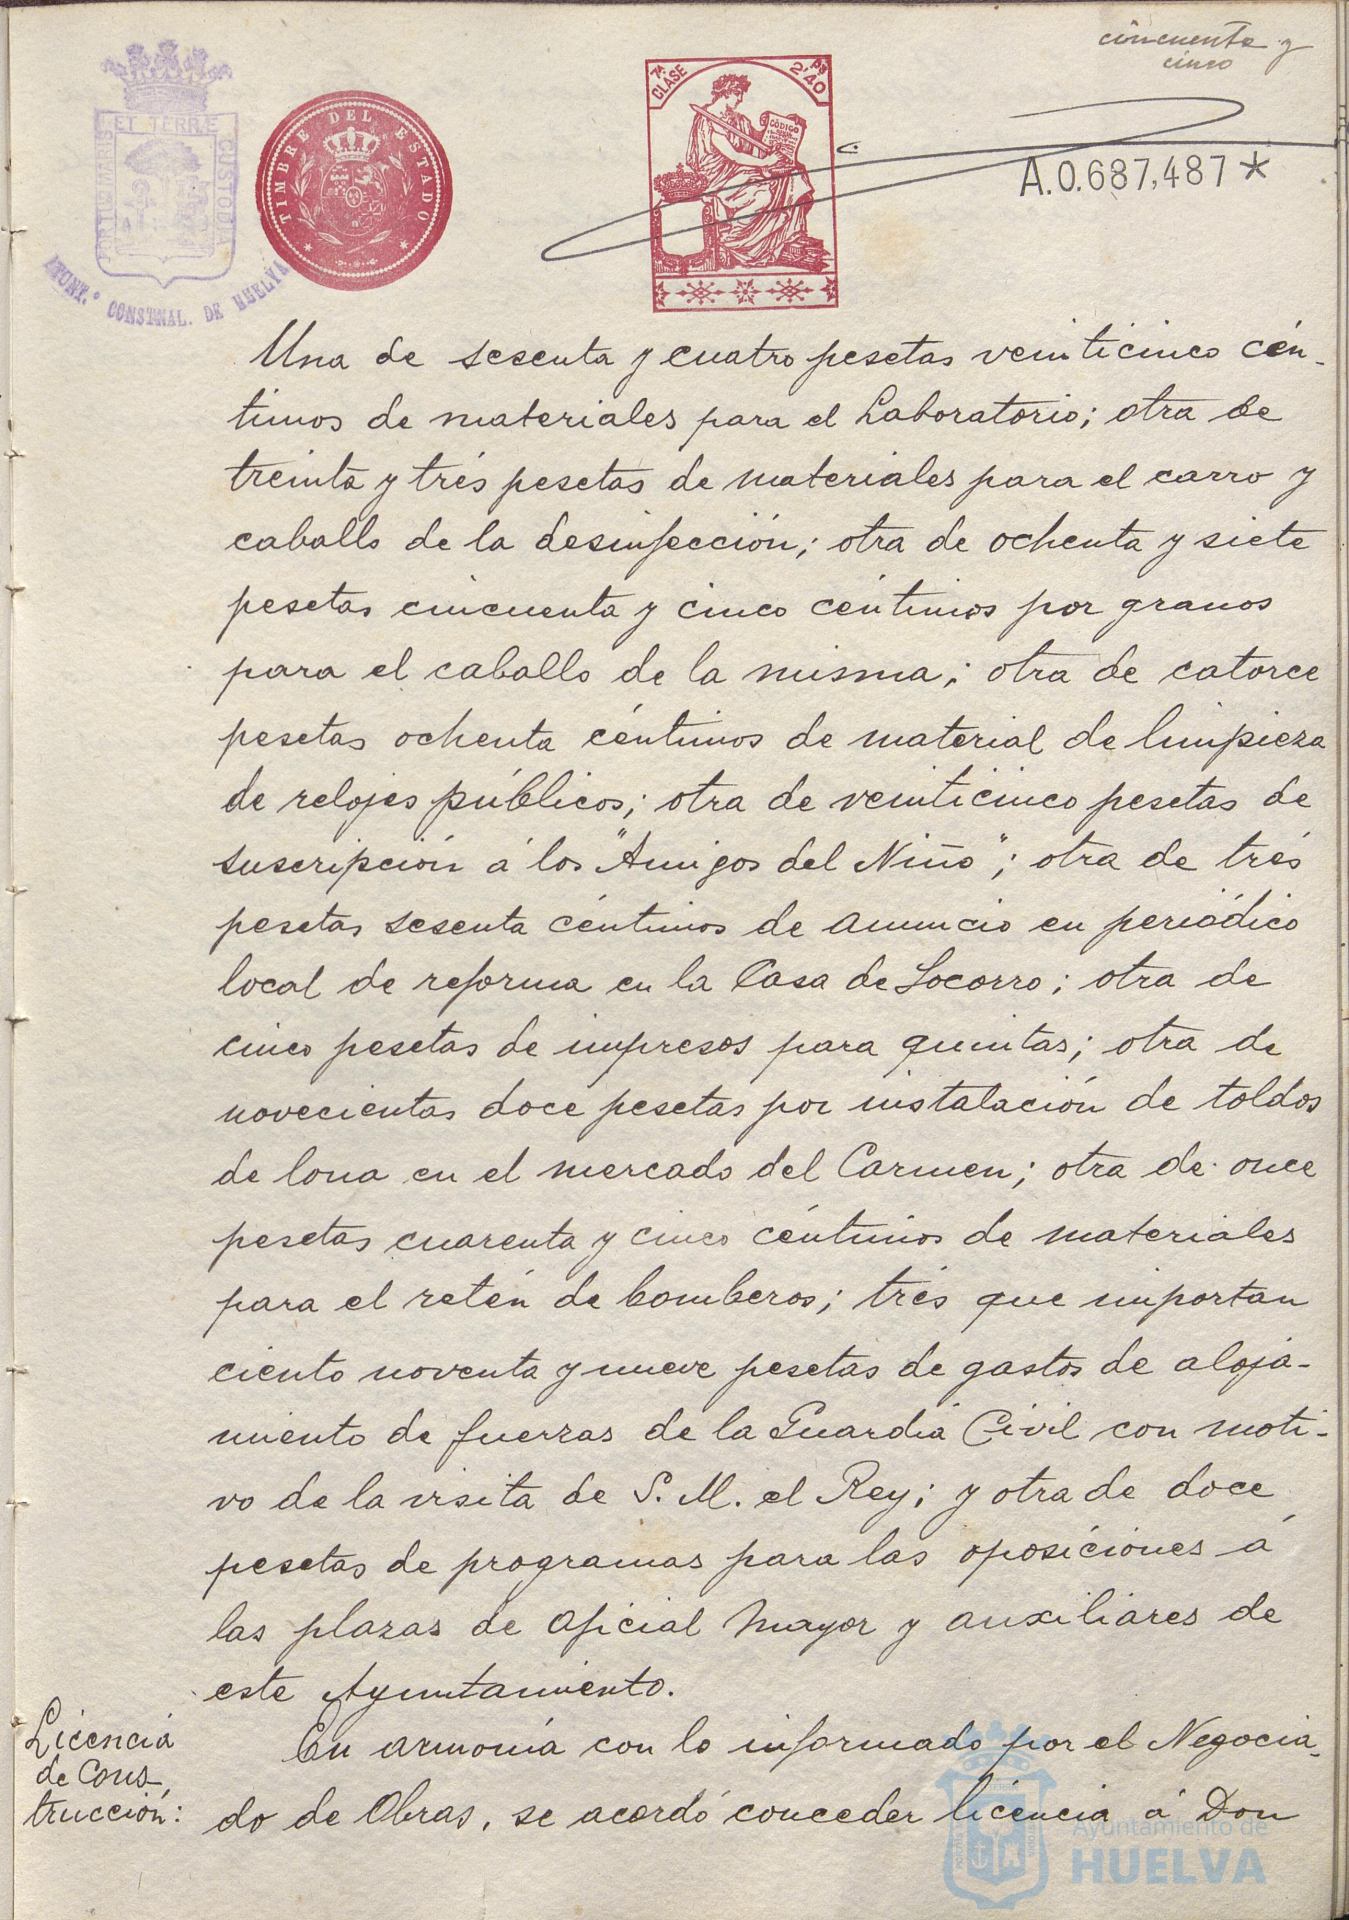 cincuenta y
cinco
PORTUS MARIS
ET TERRÆ
CUSTODIA
AYUNT.º CONSTNAL. DE HUELVA
TIMBRE DEL ESTADO
7ª CLASE
2'40 Ps
CÓDIGO
A.0.687,487 *
Una de sesenta y cuatro pesetas veinticinco cén-
timos de materiales para el Laboratorio; otra de
treinta y trés pesetas de materiales para el carro y
caballo de la desinfección; otra de ochenta y siete
pesetas cincuenta y cinco céntimos por granos
para el caballo de la misma; otra de catorce
pesetas ochenta céntimos de material de limpieza
de relojes públicos; otra de veinticinco pesetas de
suscripción á los "Amigos del Niño"; otra de trés
pesetas sesenta céntimos de anuncio en periódico
local de reforma en la Casa de Socorro; otra de
cinco pesetas de impresos para quintas; otra de
novecientas doce pesetas por instalación de toldos
de lona en el mercado del Carmen; otra de once
pesetas cuarenta y cinco céntimos de materiales
para el retén de bomberos; trés que importan
ciento noventa y nueve pesetas de gastos de aloja-
miento de fuerzas de la Guardia Civil con moti-
vo de la visita de S. M. el Rey; y otra de doce
pesetas de programas para las oposiciones á
las plazas de oficial mayor y auxiliares de
este Ayuntamiento.
Licencia
de Cons-
trucción:
En armonía con lo informado por el Negocia-
do de Obras, se acordó conceder licencia á Don
Ayuntamiento de
HUELVA